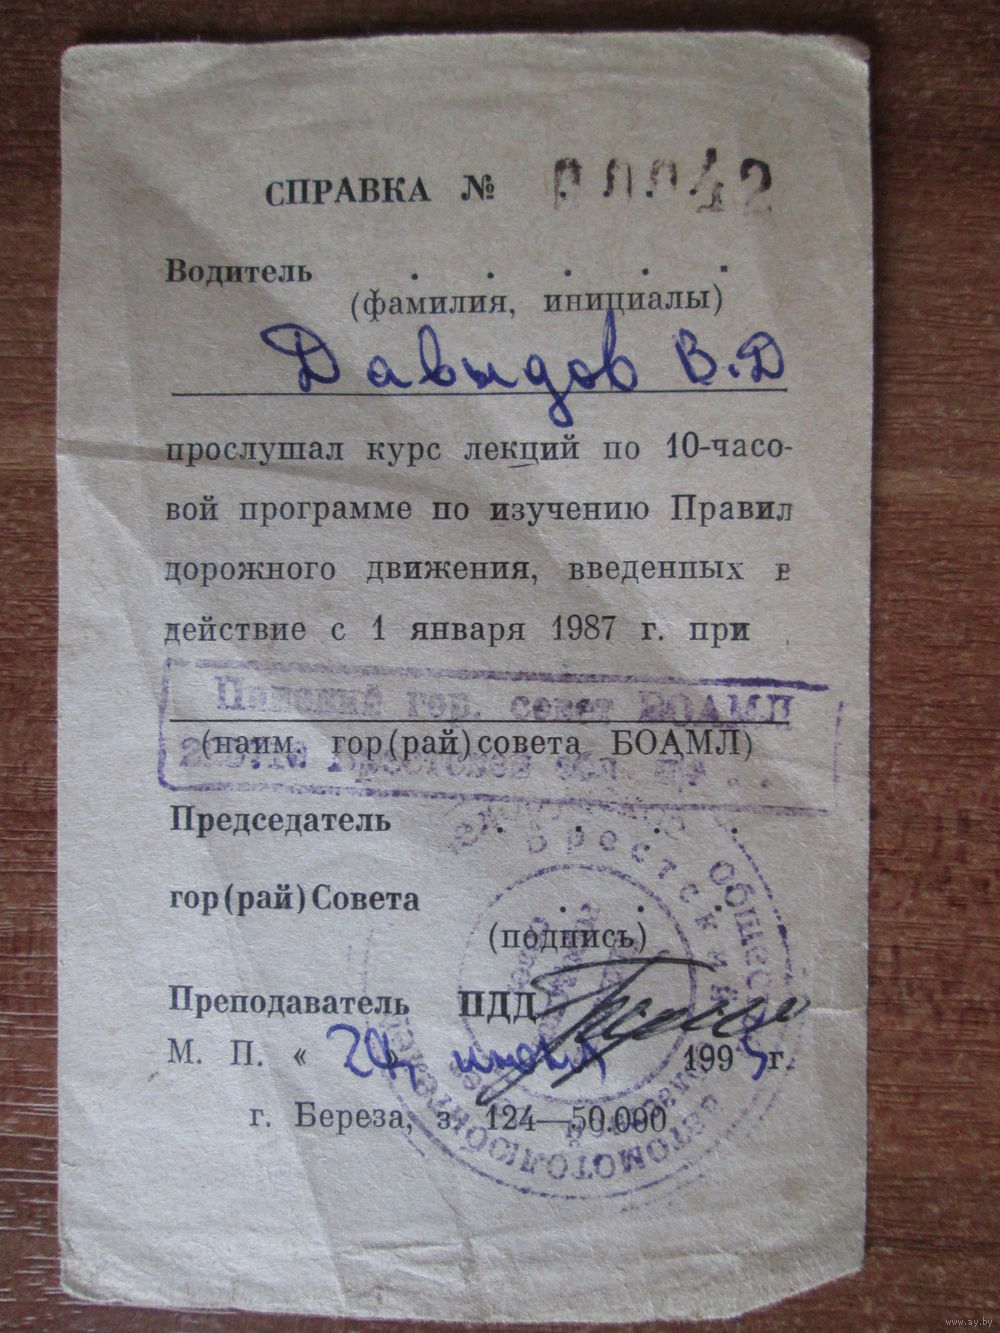 СПРАВКА № 00042
Водитель . . . . .
(фамилия, инициалы)
Давыдов В.Д
прослушал курс лекций по 10-часо-
вой программе по изучению Правил
дорожного движения, введенных в
действие с 1 января 1987 г. при
Пинский гор. совет БОАМЛ
(наим. гор(рай)совета БОАМЛ)
Брестской обл.
Председатель . . . .
гор(рай)Совета . . .
(подпись)
Преподаватель ПДД
М. П. « 24 » июля 1995 г.
г. Береза, з. 124—50.000
Брестский
общество
автомотолюбителей
www.ay.by